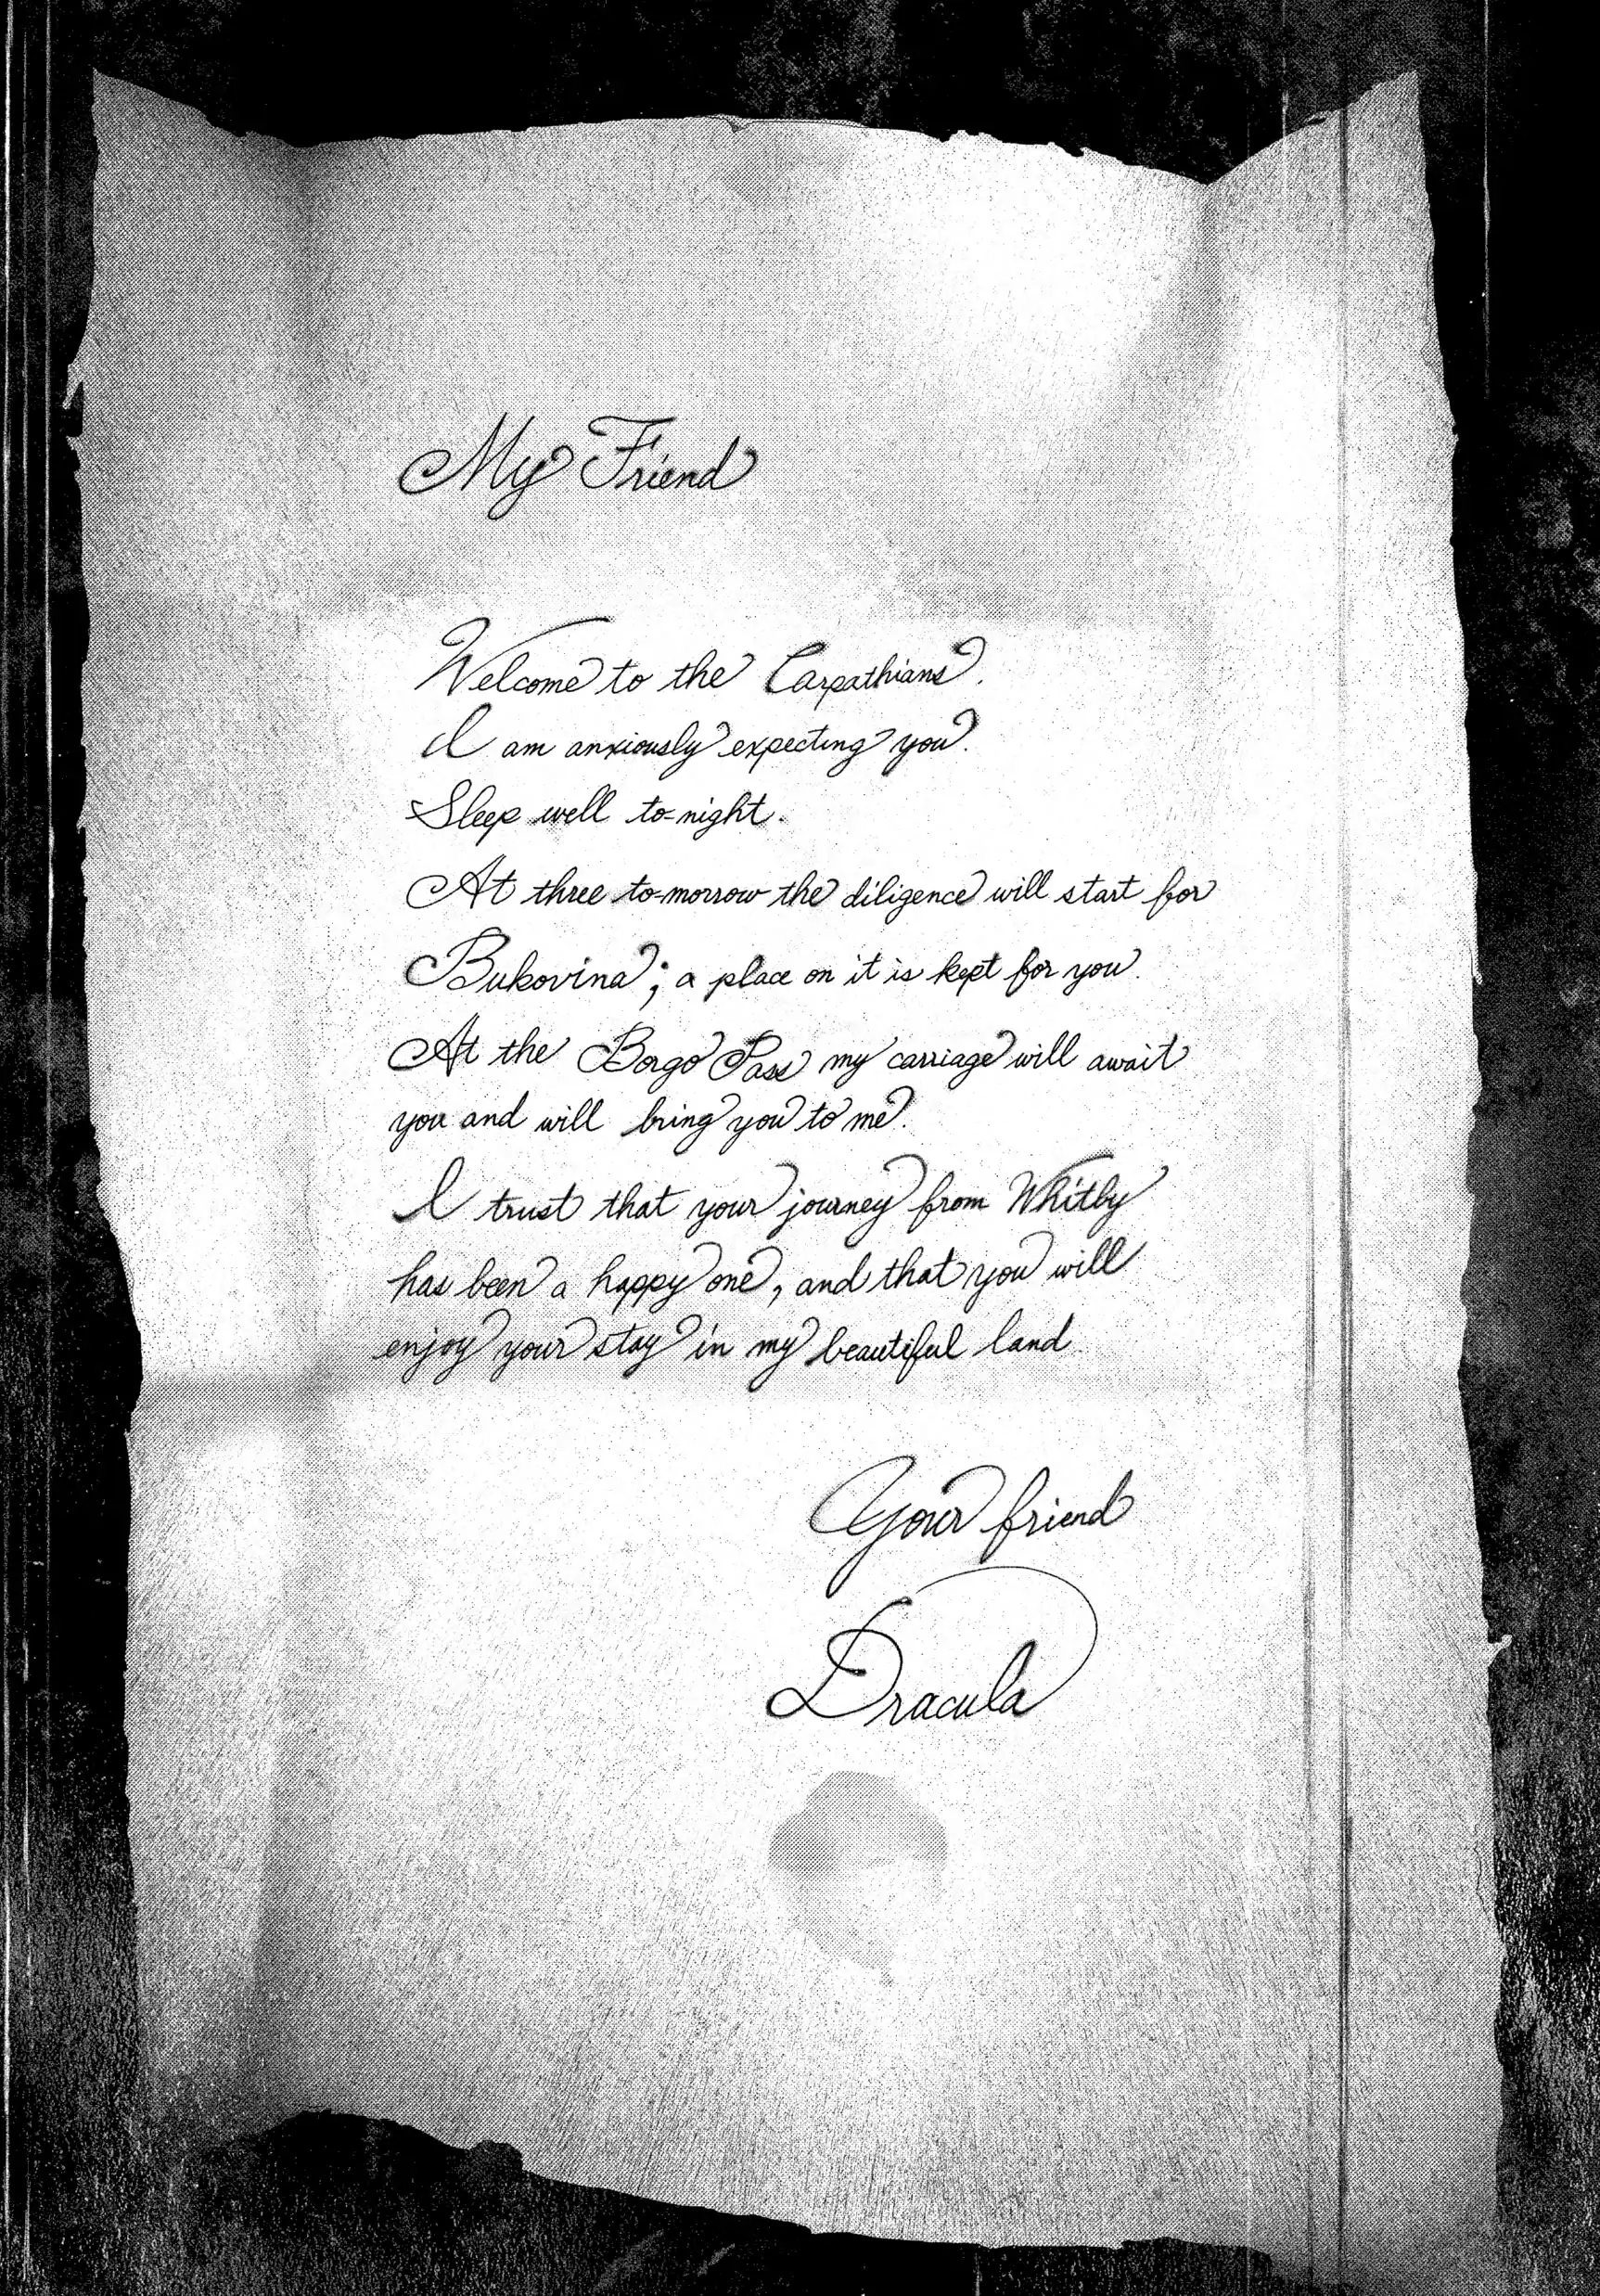 My Friend
Welcome to the Carpathians.
I am anxiously expecting you.
Sleep well to-night.
At three to-morrow the diligence will start for
Bukovina; a place on it is kept for you.
At the Borgo Pass my carriage will await
you and will bring you to me.
I trust that your journey from Whitby
has been a happy one, and that you will
enjoy your stay in my beautiful land
Your friend
Dracula